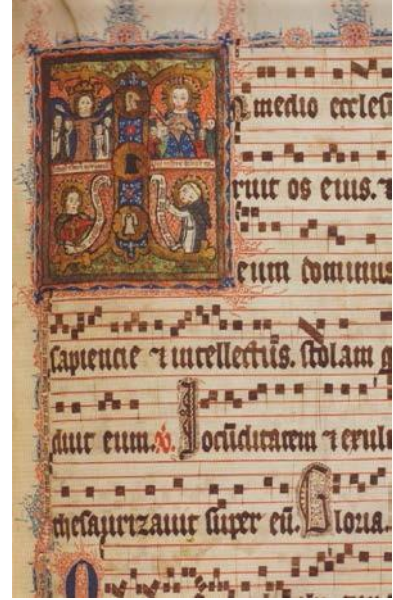 n medio eccles
ruit os eius. ⁊
eum dominus
sapiencie ⁊ intellectus. stolam g
duit eum. ℣. Iocūditatem ⁊ exul
thesaurizauit super eū. Gloria.